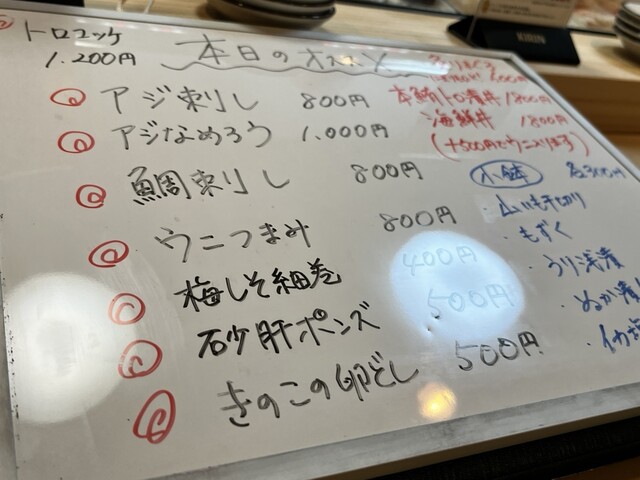 トロユッケ
1.200円
本日のオススメ
アジ刺し 800円
アジなめろう 1.000円
鯛刺し 800円
ウニつまみ 800円
梅しそ細巻 400円
砂肝ポンズ 500円
きのこの卵どじ 500円
本鮪トロ漬丼 1800円
海鮮丼 1800円
(+500円でウニ入ります)
小鉢 各300円
・山いも千切り
・もずく
・うり浅漬
・ぬか漬
・イカ塩
KIRIN